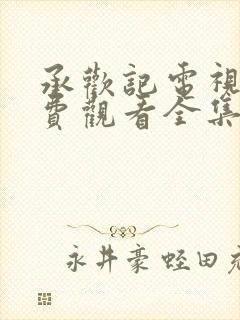 承歡記電視
費觀看全集
永井豪 蛭田充